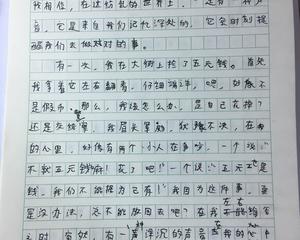 我相信，在这纷乱的世界上，一定有一种声
音，它是来自我们记忆深处的，它会时刻提
醒着我们去做对的事。
有一次，我在大街上捡了五元钱。首先
我拿着它左右翻看，仔细端详，吧，好像不
是假币。那么，我该怎么办，是自己花掉？
还是交给警，我眉头紧锁，犹豫不决，在我
的心里，好像有两个小人在争吵，一个说：
不就五元钱嘛！花了吧！一个说：五元也是
钱，我们不能据为己有！我因为这件事，
是没办法，总不能放回去吧？在我左右
之时，突然，有一神浑沉的声音